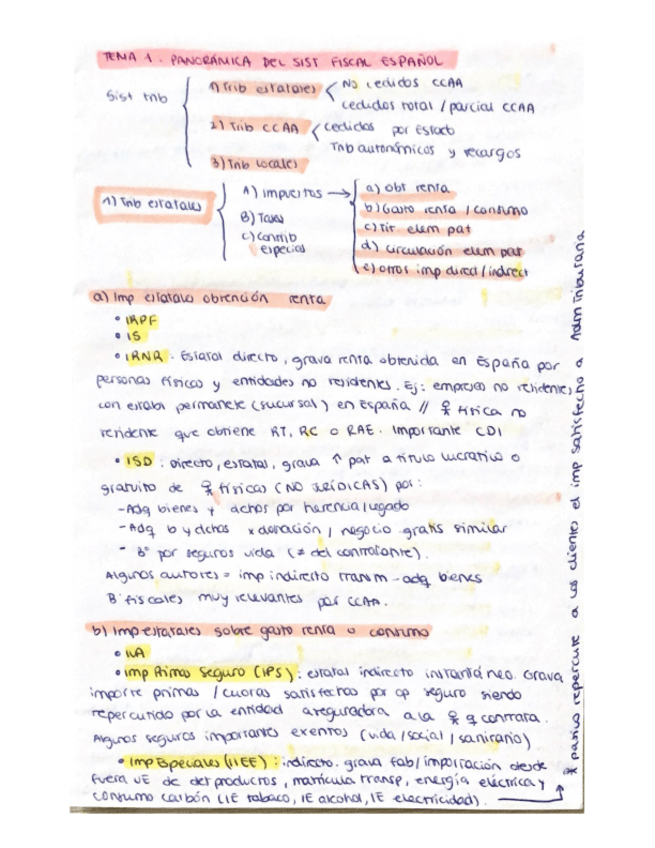 TEMA 1. PANORÁMICA DEL SIST FISCAL ESPAÑOL
Sist trib
1) Trib estatales
No cedidos CCAA
cedidos total / parcial CCAA
2) Trib CCAA
cedidos por Estado
Trib autonómicos y recargos
3) Trib locales
1) Trib estatales
A) Impuestos →
B) Tasas
C) Contrib especiales
a) obt renta
b) Gasto renta / consumo
c) Tit elem pat
d) Circulación elem pat
e) otros imp direct / indirect
a) Imp estatales obtención renta
• IRPF
• IS
• IRNR: Estatal directo, grava renta obtenida en España por
personas físicas y entidades no residentes. Ej: empresas no residentes
con establ permanete (sucursal) en España // física no
residente que obtiene RT, RC o RAE. Importante CDI
• ISD: Directo, estatal, grava ↑ pat a título lucrativo o
gratuito de físicas (NO JURÍDICAS) por:
- Adq bienes y dchos por herencia/legado
- Adq b y dchos x donación / negocio gratis similar
- Bº por seguros vida (≠ del contratante).
Algunos autores = imp indirecto transm-adq bienes
B. fiscales muy relevantes por CCAA.
b) Imp estatales sobre gasto renta o consumo
• IVA
• Imp Primas Seguro (IPS): estatal indirecto instantáneo. Grava
importe primas / cuotas satisfechas por op seguro siendo
repercutido por la entidad aseguradora a la q contrata.
Algunos seguros importantes exentos (vida / social / sanitario)
• Imp Especiales (IIEE): indirecto. grava fab/importación desde
fuera UE de det productos, matrícula transp, energía eléctrica y
consumo carbón (IE tabaco, IE alcohol, IE electricidad).
* pasivo repercute a los clientes el imp satisfecho a Adm tributaria